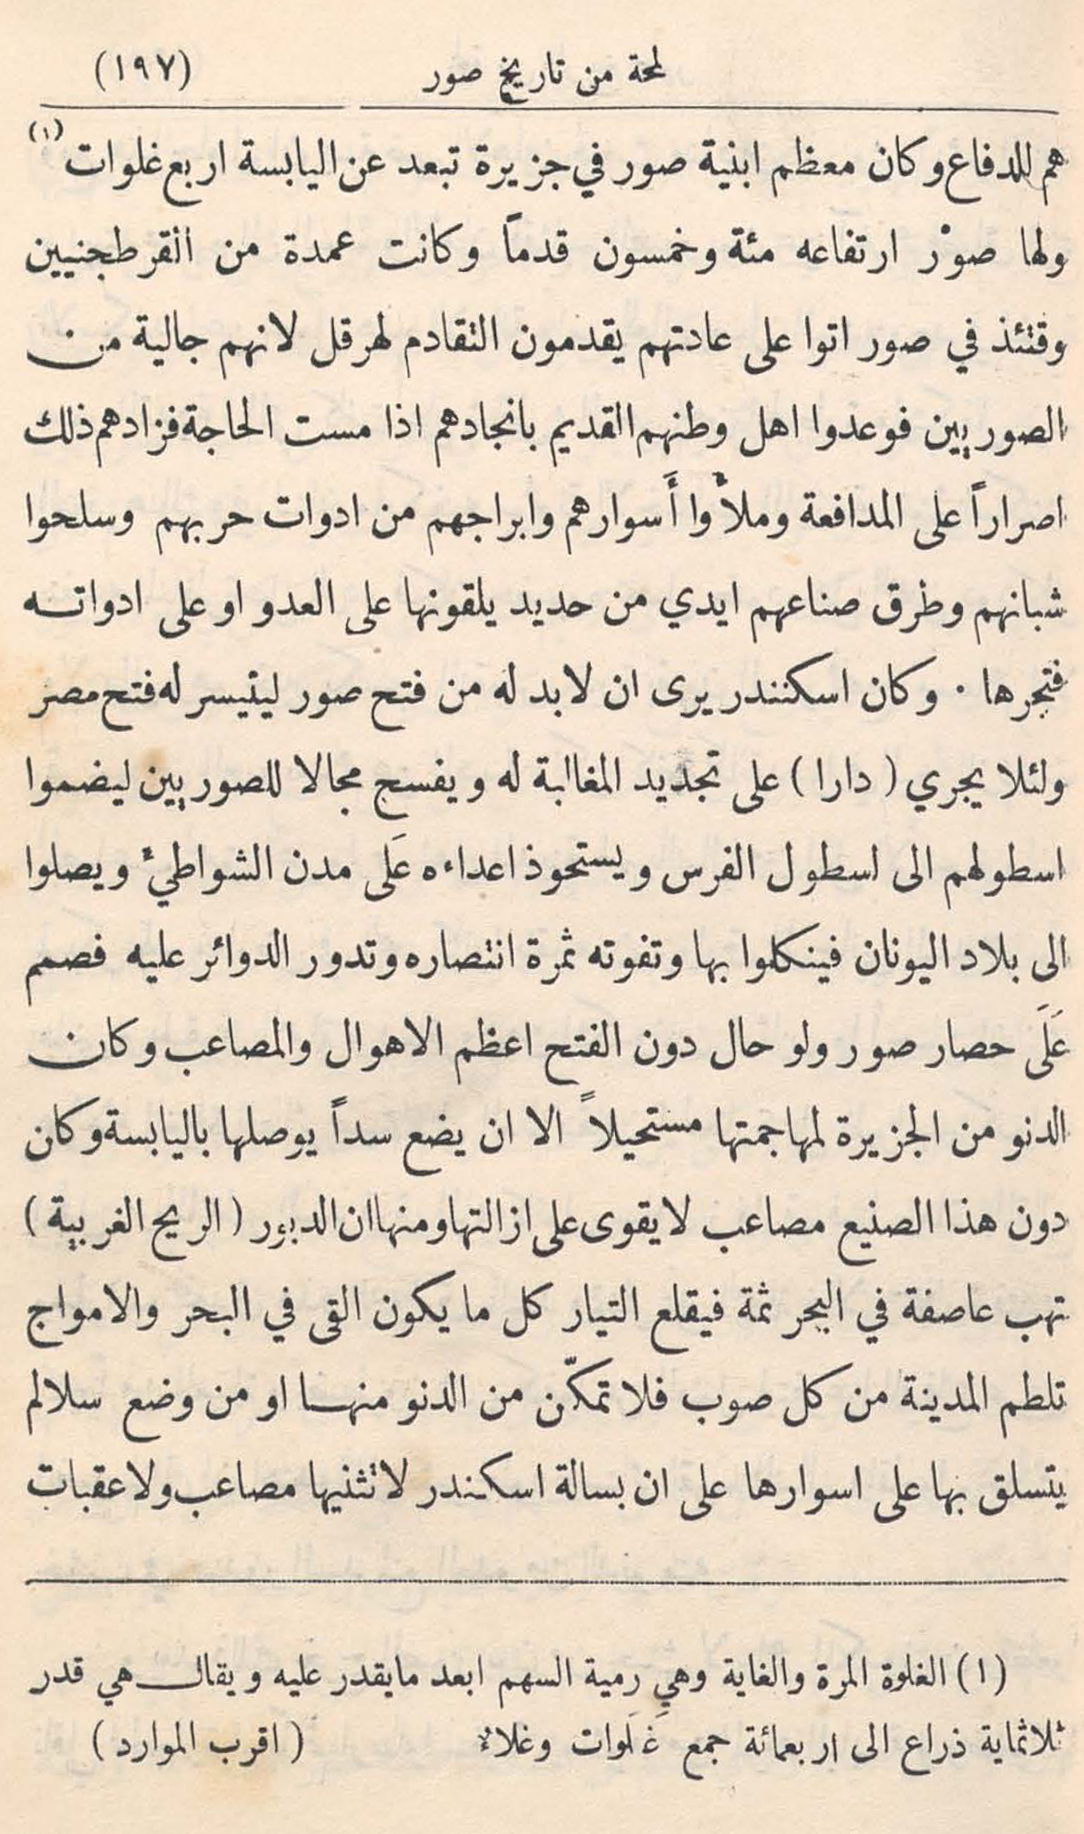 لمحة من تاريخ صور (١٩٧)
هم للدفاع وكان معظم ابنية صور في جزيرة تبعد عن اليابسة اربع غلوات (١)
ولها صوْر ارتفاعه مئة وخمسون قدماً وكانت عمدة من القرطجنيين
وقتئذ في صور اتوا على عادتهم يقدمون التقادم لهرقل لانهم جالية من
الصوريين فوعدوا اهل وطنهم القديم بانجادهم اذا مست الحاجة فزادهم ذلك
اصراراً على المدافعة وملأوا أَسوارهم وابراجهم من ادوات حربهم وسلحوا
شبانهم وطرق صناعهم ايدي من حديد يلقونها على العدو او على ادواته
فتجرها . وكان اسكنندر يرى ان لابد له من فتح صور ليتيسر له فتح مصر
ولئلا يجري (دارا) على تجديد المغالبة له ويفسح مجالا للصوريين ليضموا
اسطولهم الى اسطول الفرس ويستحوذ اعداءه عَلى مدن الشواطيء ويصلوا
الى بلاد اليونان فينكلوا بها وتفوته ثمرة انتصاره وتدور الدوائر عليه فصمم
عَلَى حصار صور ولو حال دون الفتح اعظم الاهوال والمصاعب وكان
الدنو من الجزيرة لمهاجمتها مستحيلاً الا ان يضع سداً يوصلها باليابسة وكان
دون هذا الصنيع مصاعب لا يقوى على ازالتها ومنها ان الدبور (الريح الغربية)
تهب عاصفة في البحر ثمة فيقلع التيار كل ما يكون القى في البحر والامواج
تلطم المدينة من كل صوب فلا تمكّن من الدنو منها او من وضع سلالم
يتسلق بها على اسوارها على ان بسالة اسكندر لا تثنيها مصاعب ولا عقبات
(١) الغلوة المرة والغاية وهي رمية السهم ابعد ما يقدر عليه ويقال هي قدر
ثلاثماية ذراع الى اربعمائة جمع غَلَوات وغلاء (اقرب الموارد)